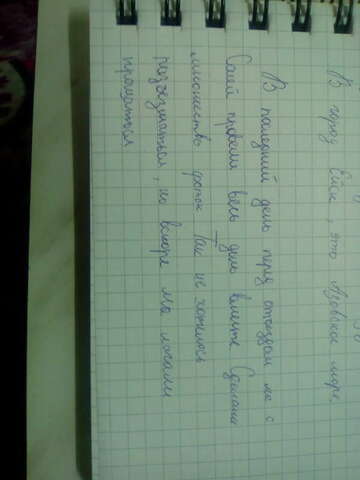 В город Ейск, это Азовское море.
В последний день перед отъездом мы с
Сашей провели весь день вместе Сделали
множество фоток Так не хотелось
разъезжаться, но вскоре мы начали
прощаться